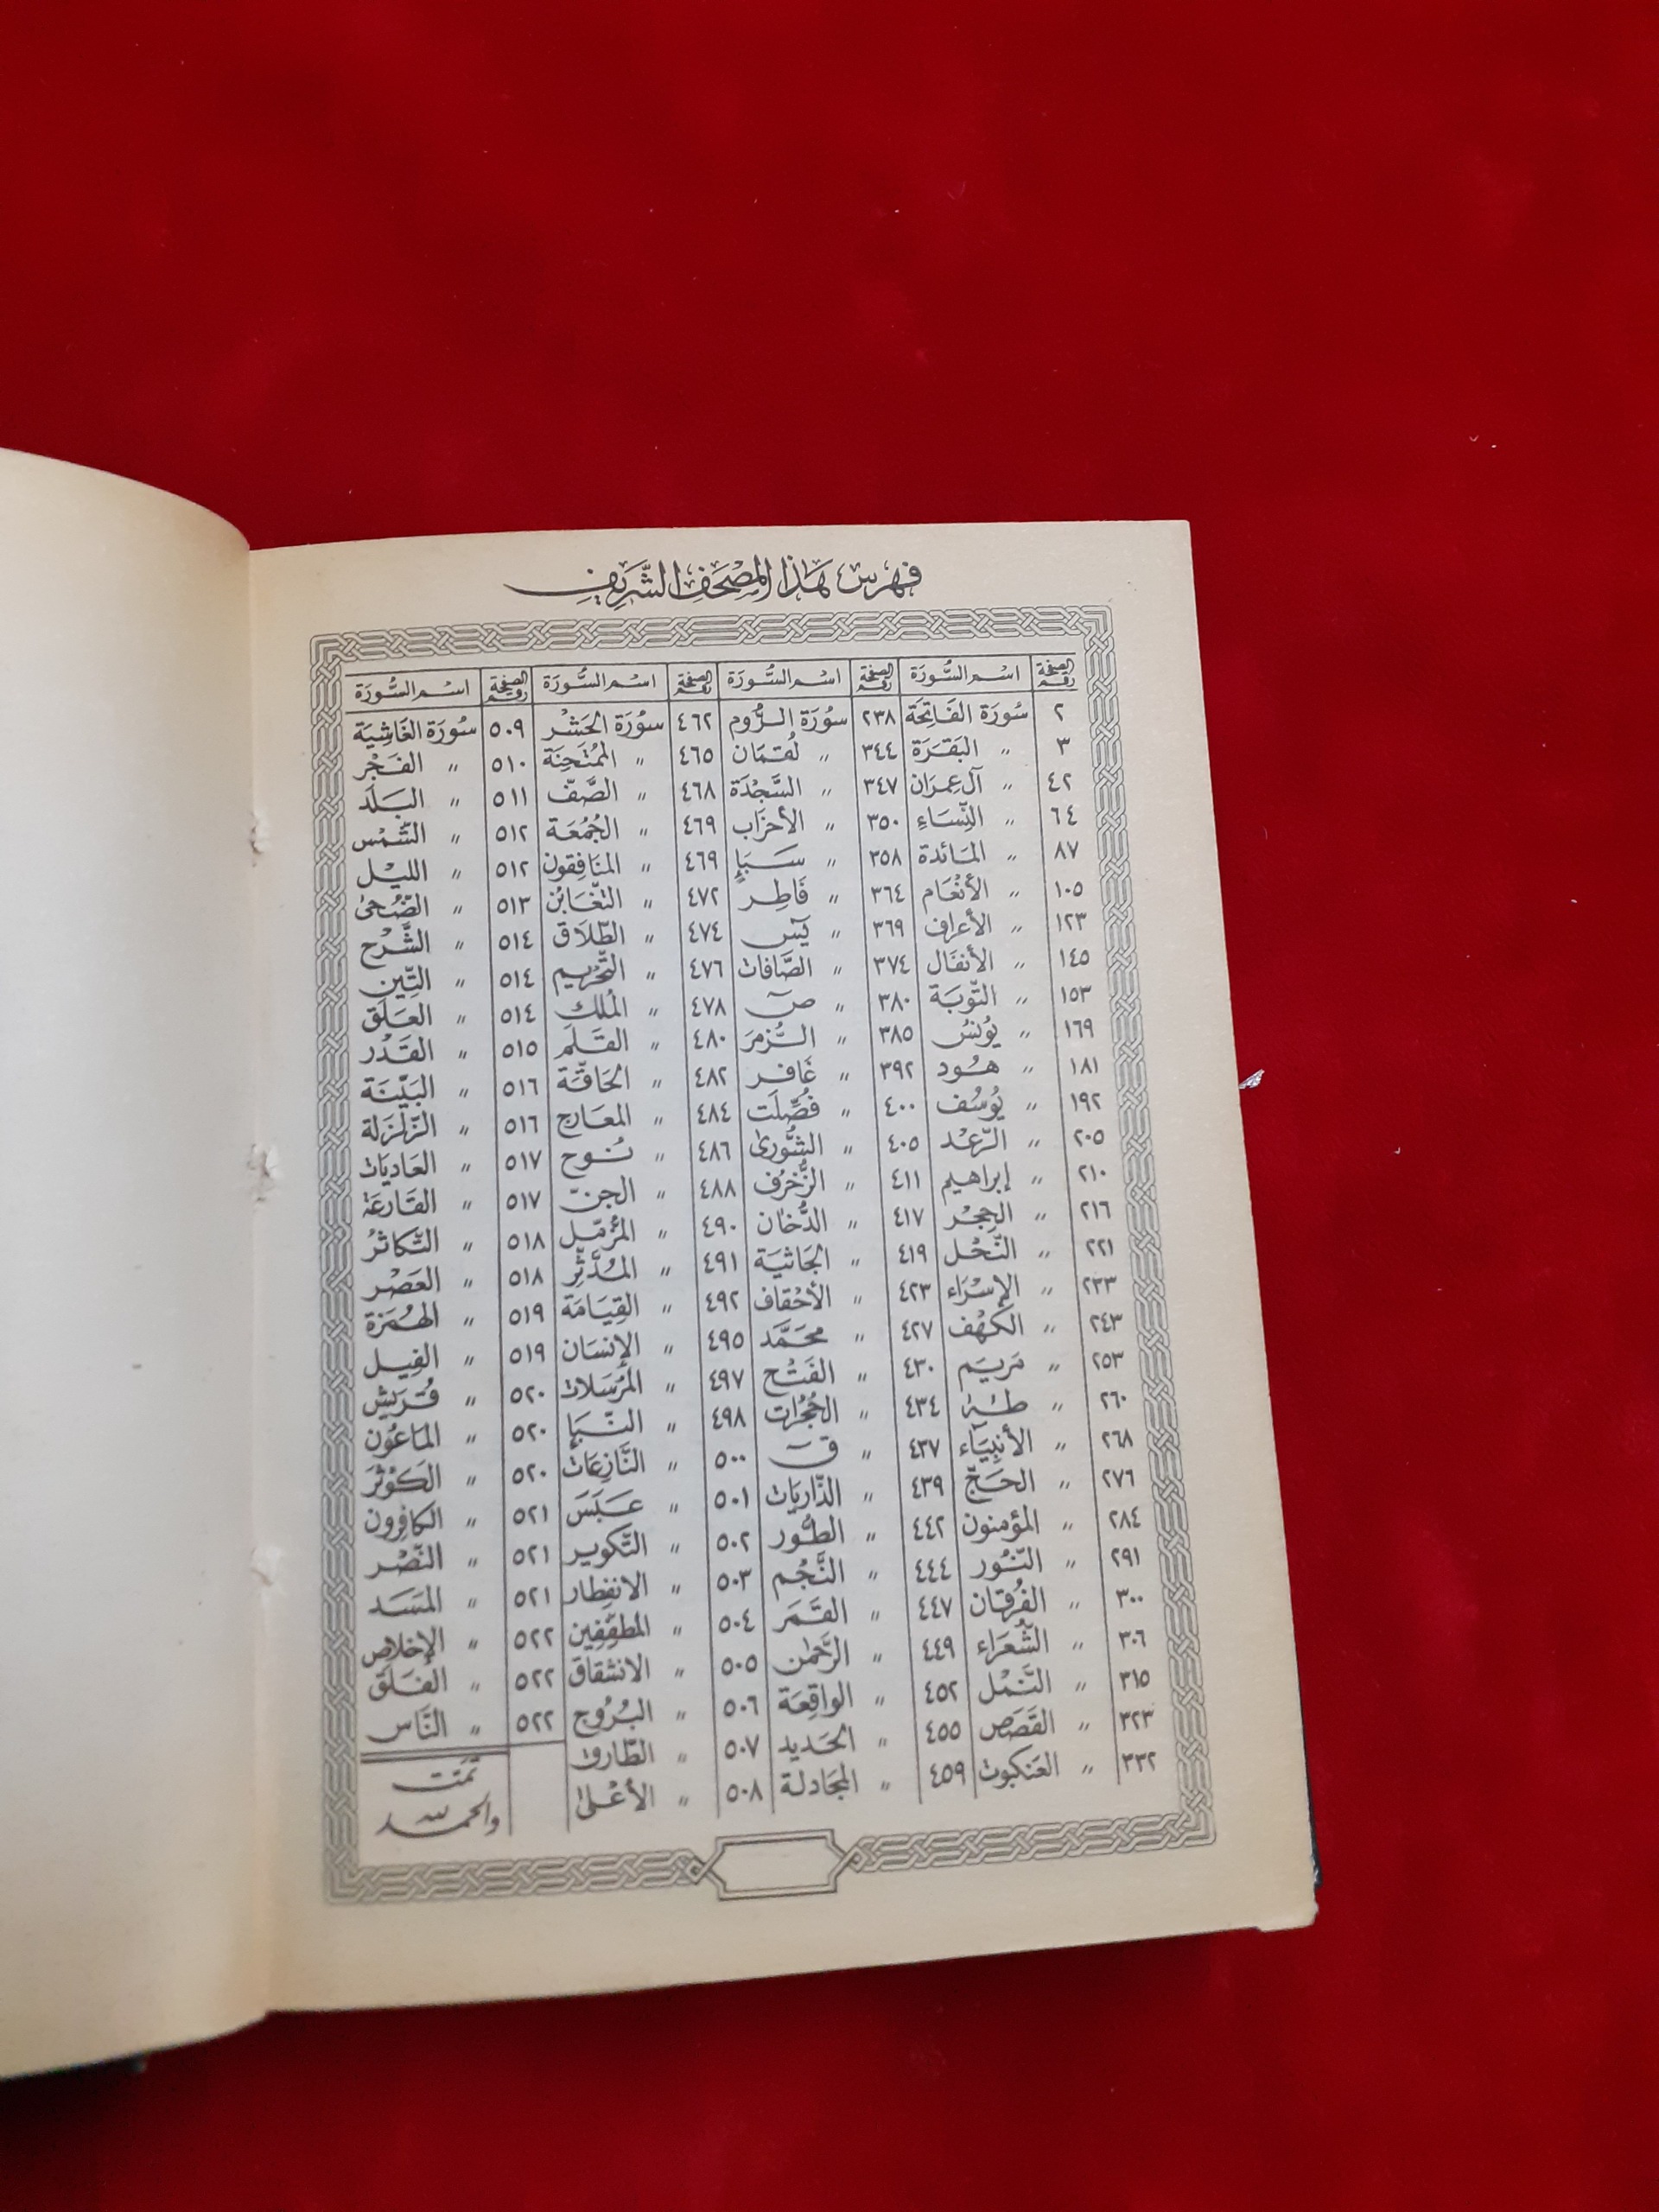 فهرس هٰذا المصحف الشّريف
رقم الصفحة اسم السُّورَة رقم الصفحة اسم السُّورَة رقم الصفحة اسم السُّورَة رقم الصفحة اسم السُّورَة
٢ سُورَة الفَاتِحَة ٢٣٨ سُورَة الرُّوم ٤٦٢ سُورَة الحَشْر ٥٠٩ سُورَة الغَاشِيَة
٣ " البَقَرَة ٣٤٤ " لُقمَان ٤٦٥ " المُمتَحِنَة ٥١٠ " الفَجْر
٤٢ " آل عِمرَان ٣٤٧ " السَّجْدَة ٤٦٨ " الصَّفّ ٥١١ " البَلَد
٦٤ " النِّسَاءِ ٣٥٠ " الأحزَاب ٤٦٩ " الجُمُعَة ٥١٢ " الشَّمْس
٨٧ " المَائدة ٣٥٨ " سَبَإٍ ٤٦٩ " المنَافِقون ٥١٢ " الليْل
١٠٥ " الأنْعَام ٣٦٤ " فَاطِر ٤٧٢ " التّغَابُن ٥١٣ " الضُّحىٰ
١٢٣ " الأعراف ٣٦٩ " يسٓ ٤٧٤ " الطّلَاق ٥١٤ " الشَّرْح
١٤٥ " الأنفَال ٣٧٤ " الصَّافات ٤٧٦ " التّحْريم ٥١٤ " التِّين
١٥٣ " التّوبَة ٣٨٠ " صٓ ٤٧٨ " المُلك ٥١٤ " العَلَق
١٦٩ " يُونسُ ٣٨٥ " الزُّمَر ٤٨٠ " القَلَم ٥١٥ " القَدْر
١٨١ " هُود ٣٩٢ " غَافر ٤٨٢ " الحَاقَّة ٥١٦ " البَيّنَة
١٩٢ " يُوسُف ٤٠٠ " فُصِّلَت ٤٨٤ " المعَارج ٥١٦ " الزّلزَلة
٢٠٥ " الرّعْد ٤٠٥ " الشُّورىٰ ٤٨٦ " نُوح ٥١٧ " العَاديَات
٢١٠ " إبراهيم ٤١١ " الزُّخرُف ٤٨٨ " الجنّ ٥١٧ " القَارعَة
٢١٦ " الحِجْر ٤١٧ " الدُّخان ٤٩٠ " المُزّمّل ٥١٨ " التّكاثُر
٢٢١ " النّحْل ٤١٩ " الجَاثيَة ٤٩١ " المُدَّثِّر ٥١٨ " العَصْر
٢٣٣ " الإسْرَاء ٤٢٣ " الأحْقاف ٤٩٢ " القِيَامَة ٥١٩ " الهُمَزة
٢٤٣ " الكهْف ٤٢٧ " محَمَّد ٤٩٥ " الإنسَان ٥١٩ " الفِيل
٢٥٣ " مَريَم ٤٣٠ " الفَتْح ٤٩٧ " المُرسَلات ٥٢٠ " قُريش
٢٦٠ " طٰهٰ ٤٣٤ " الحُجُرات ٤٩٨ " النّبَإ ٥٢٠ " المَاعُون
٢٦٨ " الأنبِيَاء ٤٣٧ " قٓ ٥٠٠ " النَّازِعَات ٥٢٠ " الكَوْثَر
٢٧٦ " الحَجّ ٤٣٩ " الذّاريَات ٥٠١ " عَبَسَ ٥٢١ " الكافِرون
٢٨٤ " المؤمنون ٤٤٢ " الطُّور ٥٠٢ " التّكوير ٥٢١ " النّصْر
٢٩١ " النّور ٤٤٤ " النَّجْم ٥٠٣ " الانفِطار ٥٢١ " المَسَد
٣٠٠ " الفُرقان ٤٤٧ " القَمَر ٥٠٤ " المطفِّفِين ٥٢٢ " الإخلاص
٣٠٦ " الشُّعَرَاء ٤٤٩ " الرَّحْمٰن ٥٠٥ " الانشقاق ٥٢٢ " الفَلَق
٣١٥ " النَّمْل ٤٥٢ " الواقِعَة ٥٠٦ " البُرُوج ٥٢٢ " النَّاس
٣٢٣ " القَصَص ٤٥٥ " الحَديد ٥٠٧ " الطّارق تمّت
٣٣٢ " العَنكبوت ٤٥٩ " المجَادلة ٥٠٨ " الأعْلىٰ والحمد لله